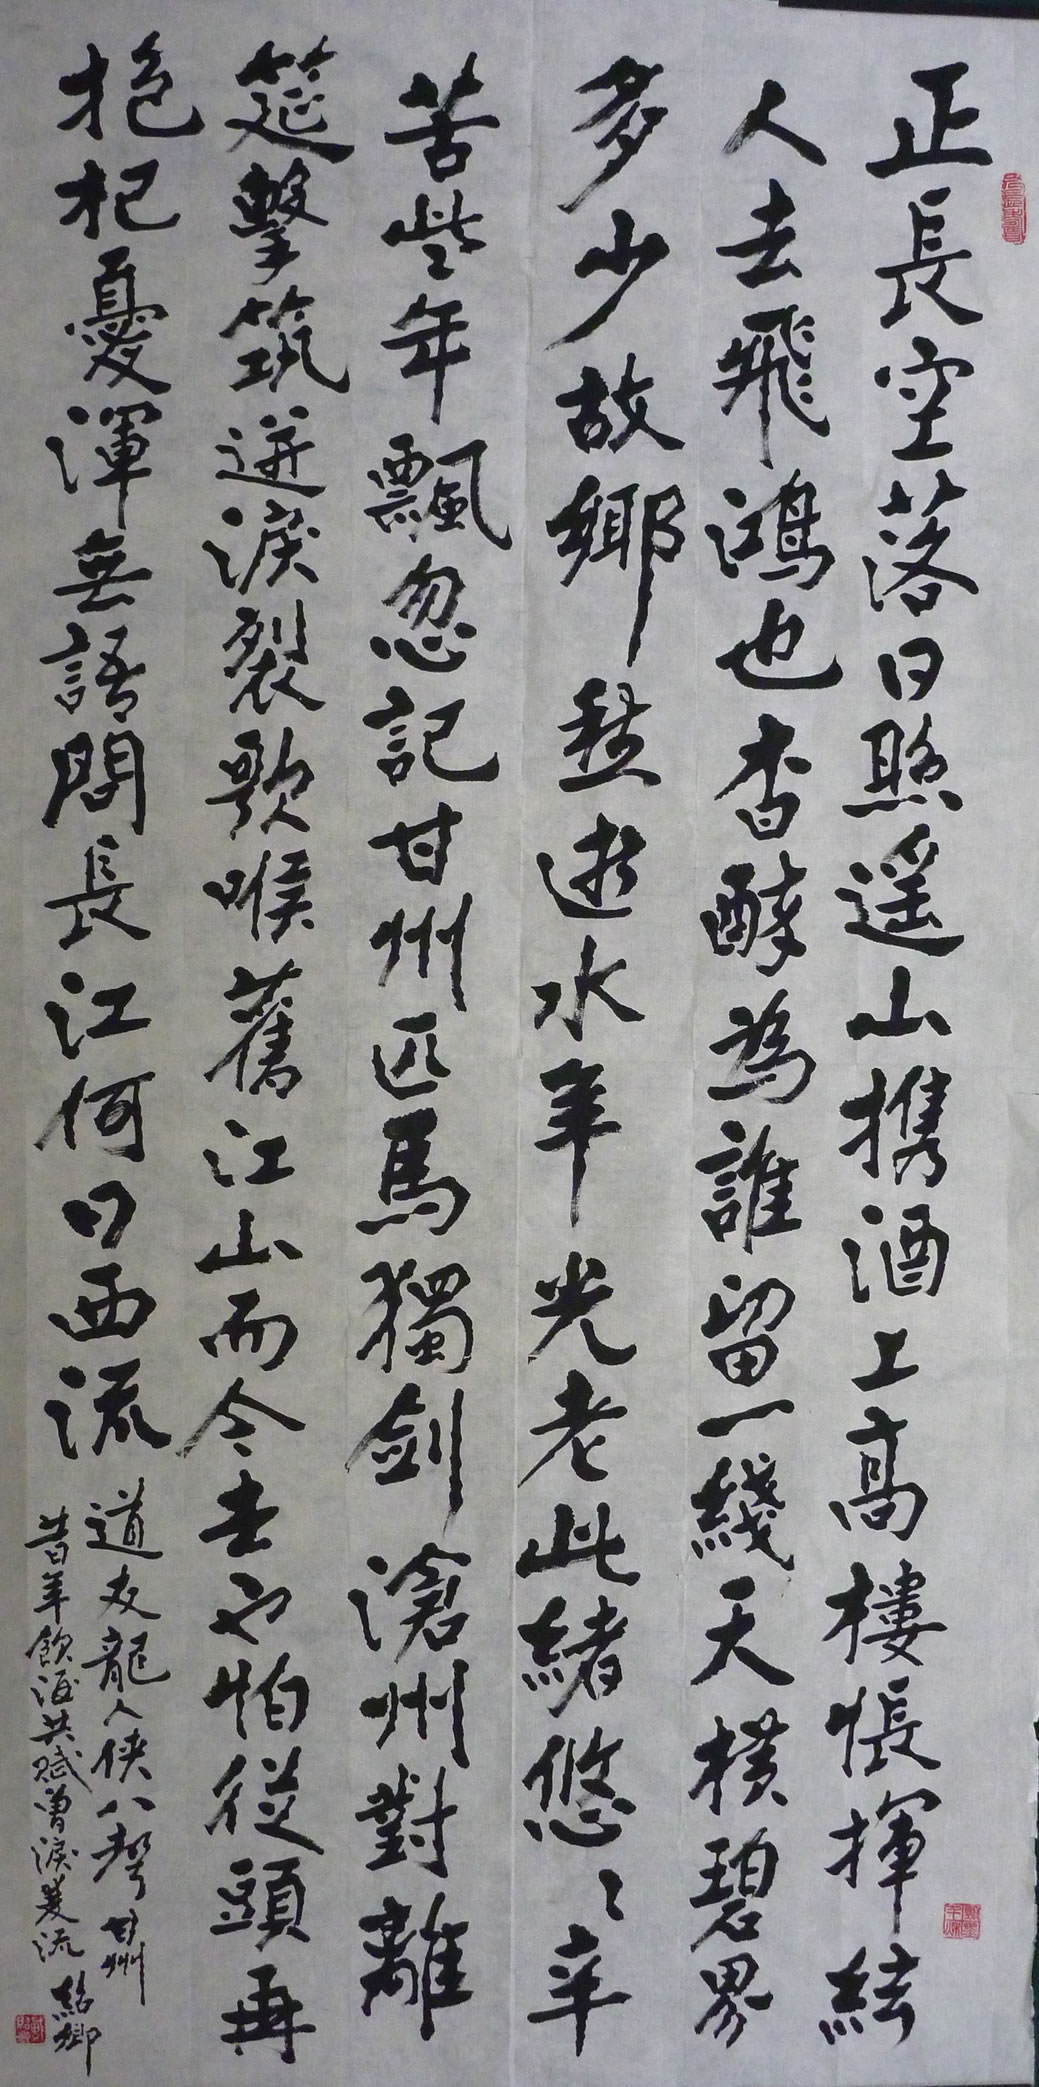 正長空落日照遥山攜酒上高樓悵揮絃
人去飛鴻也杳醉為誰留一綫天橫碧界
多少故鄉愁逝水年光老此緒悠〻辛
苦些年飄忽記甘州匹馬獨劍滄州對離
筵擊筑迸淚裂歌喉舊江山而今去也怕從頭再
抱杞憂渾無語問長江何日西流
道友龍人俠八聲甘州
昔年飲酒共賦曾淚雙流 紹卿